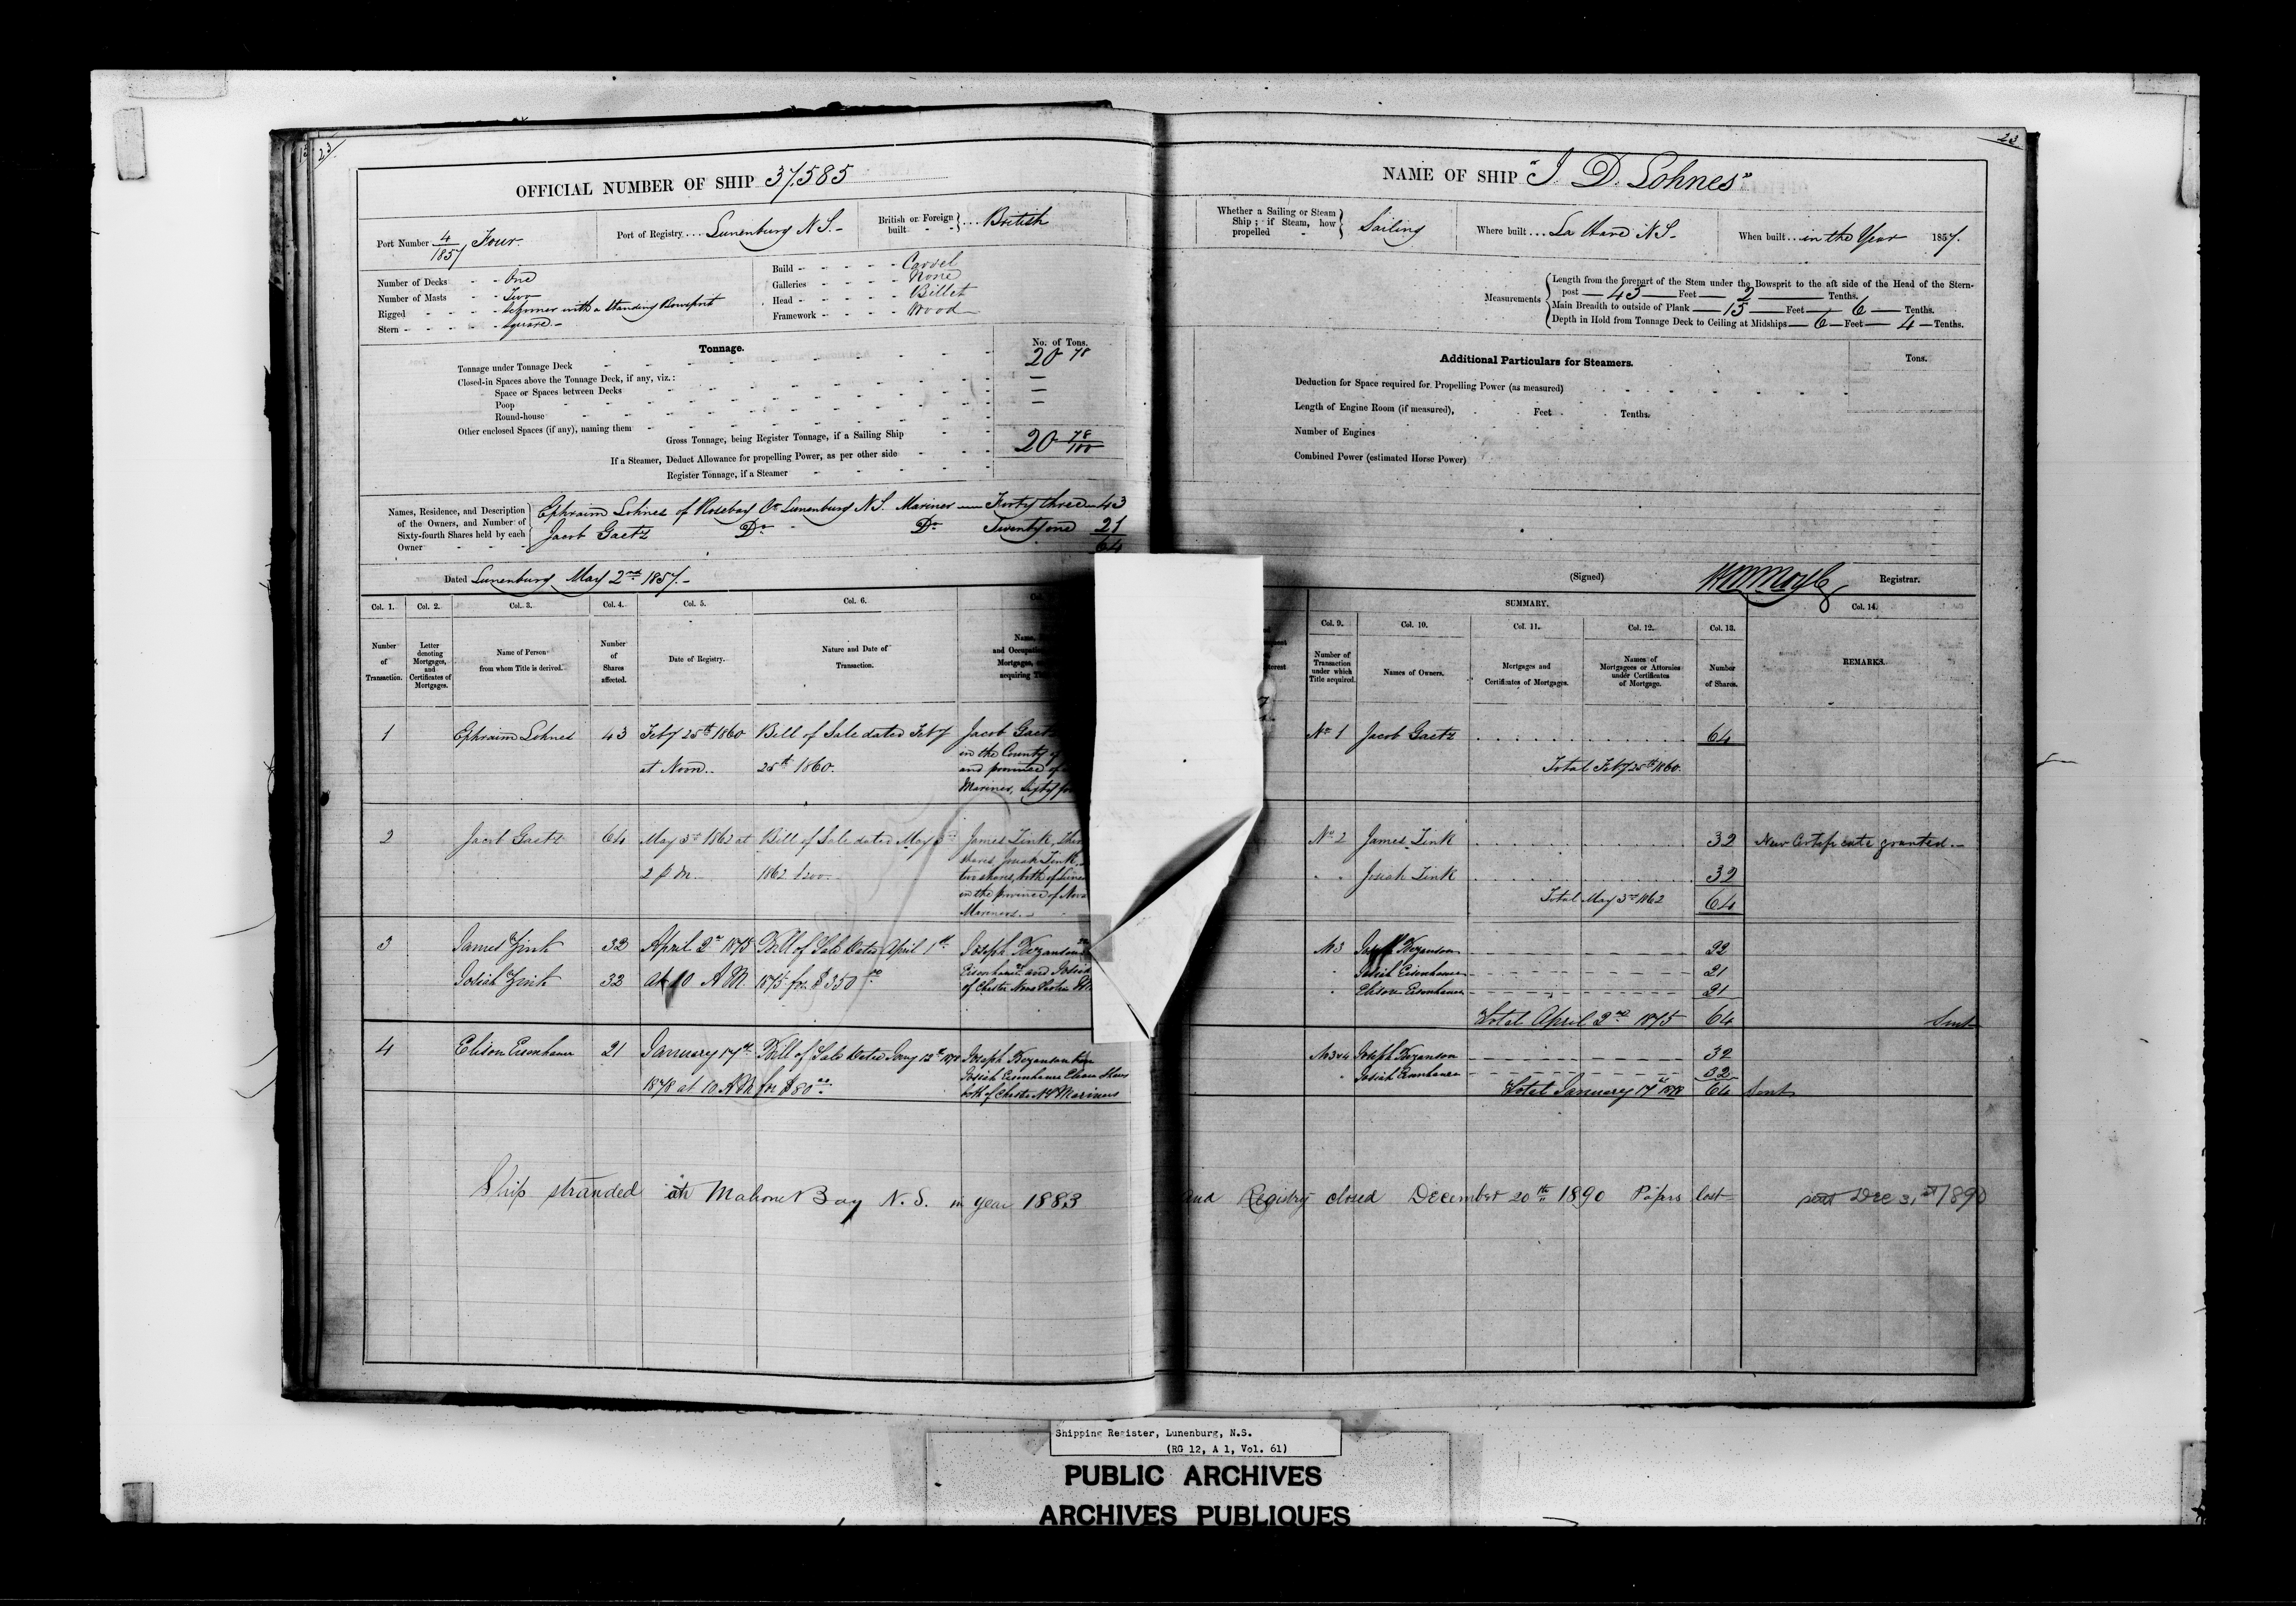 23
OFFICIAL NUMBER OF SHIP 37.585
Port Number 4/1857 Four.
Port of Registry Lunenburg N S.
British or Foreign built British
Number of Decks One
Number of Masts Two
Rigged Schooner with a standing Bowsprit
Stern Square
Build Carvel
Galleries None
Head Billet
Framework Wood
Tonnage.
No. of Tons.
Tonnage under Tonnage Deck 20 78
Closed-in Spaces above the Tonnage Deck, if any, viz.:
Space or Spaces between Decks —
Poop —
Round-house —
Other enclosed Spaces (if any), naming them
Gross Tonnage, being Register Tonnage, if a Sailing Ship 20 78/100
If a Steamer, Deduct Allowance for propelling Power, as per other side
Register Tonnage, if a Steamer
Names, Residence, and Description of the Owners, and Number of Sixty-fourth Shares held by each Owner
Ephraim Lohnes of Rosebay Co Lunenburg N.S. Mariner Forty three 43
Jacob Gaetz Do Do Twenty one 21
64
Dated Lunenburg May 2nd 1857.
Col. 1. Col. 2. Col. 3. Col. 4. Col. 5. Col. 6.
Number of Transaction.
Letter denoting Mortgages, and Certificates of Mortgages.
Name of Person from whom Title is derived.
Number of Shares affected.
Date of Registry.
Nature and Date of Transaction.
Name,
and Occupation
Mortgages,
acquiring
1 Ephraim Lohnes 43 Feby 25th 1860 Bill of Sale dated Feby Jacob Gaetz
at Noon. 25th 1860. in the County of
and province of
Mariner, Sixty
2 Jacob Gaetz 64 May 3rd 1862 at Bill of Sale dated May 3rd James Zink,
2 p m. 1862 shares, Josiah Zink
two shares, both of
in the province of Nova
Mariners.
3 James Zink 32 April 2nd 1875 Bill of Sale dated April 1st Joseph
Josiah Zink 32 at 10 A M. 1875 for $350 Eisenhauer and Josiah
of Chester Nova Scotia
4 Elison Eisenhauer 21 January 17th Bill of Sale dated Jany 12th 1878 Joseph
1878 at 10 A M for $80 Josiah Eisenhauer
both of Chester N S Mariners
Ship stranded at Mahone Bay N. S. in year 1883
23
NAME OF SHIP "J. D. Lohnes"
Whether a Sailing or Steam Ship; if Steam, how propelled Sailing
Where built La Have N S
When built in the Year 1857.
Measurements
Length from the forepart of the Stem under the Bowsprit to the aft side of the Head of the Stern-
post 43 Feet 2 Tenths.
Main Breadth to outside of Plank 15 Feet 6 Tenths.
Depth in Hold from Tonnage Deck to Ceiling at Midships 6 Feet 4 Tenths.
Additional Particulars for Steamers.
Tons.
Deduction for Space required for Propelling Power (as measured)
Length of Engine Room (if measured), Feet Tenths.
Number of Engines
Combined Power (estimated Horse Power)
(Signed) Registrar.
SUMMARY.
Col. 9. Col. 10. Col. 11. Col. 12. Col. 13. Col. 14.
Number of Transaction under which Title acquired.
Names of Owners.
Mortgages and Certificates of Mortgages.
Names of Mortgagees or Attornies under Certificates of Mortgage.
Number of Shares.
REMARKS.
No 1 Jacob Gaetz 64
Total Feby 25th 1860.
No 2 James Zink 32 New Certificate granted.
Josiah Zink 32
Total May 3rd 1862 64
No 3 Joseph 22
Josiah Eisenhauer 21
Elison Eisenhauer 21
Total April 2nd 1875 64 Sent
No 3 & 4 Joseph 32
Josiah Eisenhauer 32
Total January 17th 1878 64 Sent
and Registry closed December 20th 1890 Papers lost Dec 31st 1890
Shipping Register, Lunenburg, N.S.
(RG 12, A 1, Vol. 61)
PUBLIC ARCHIVES
ARCHIVES PUBLIQUES